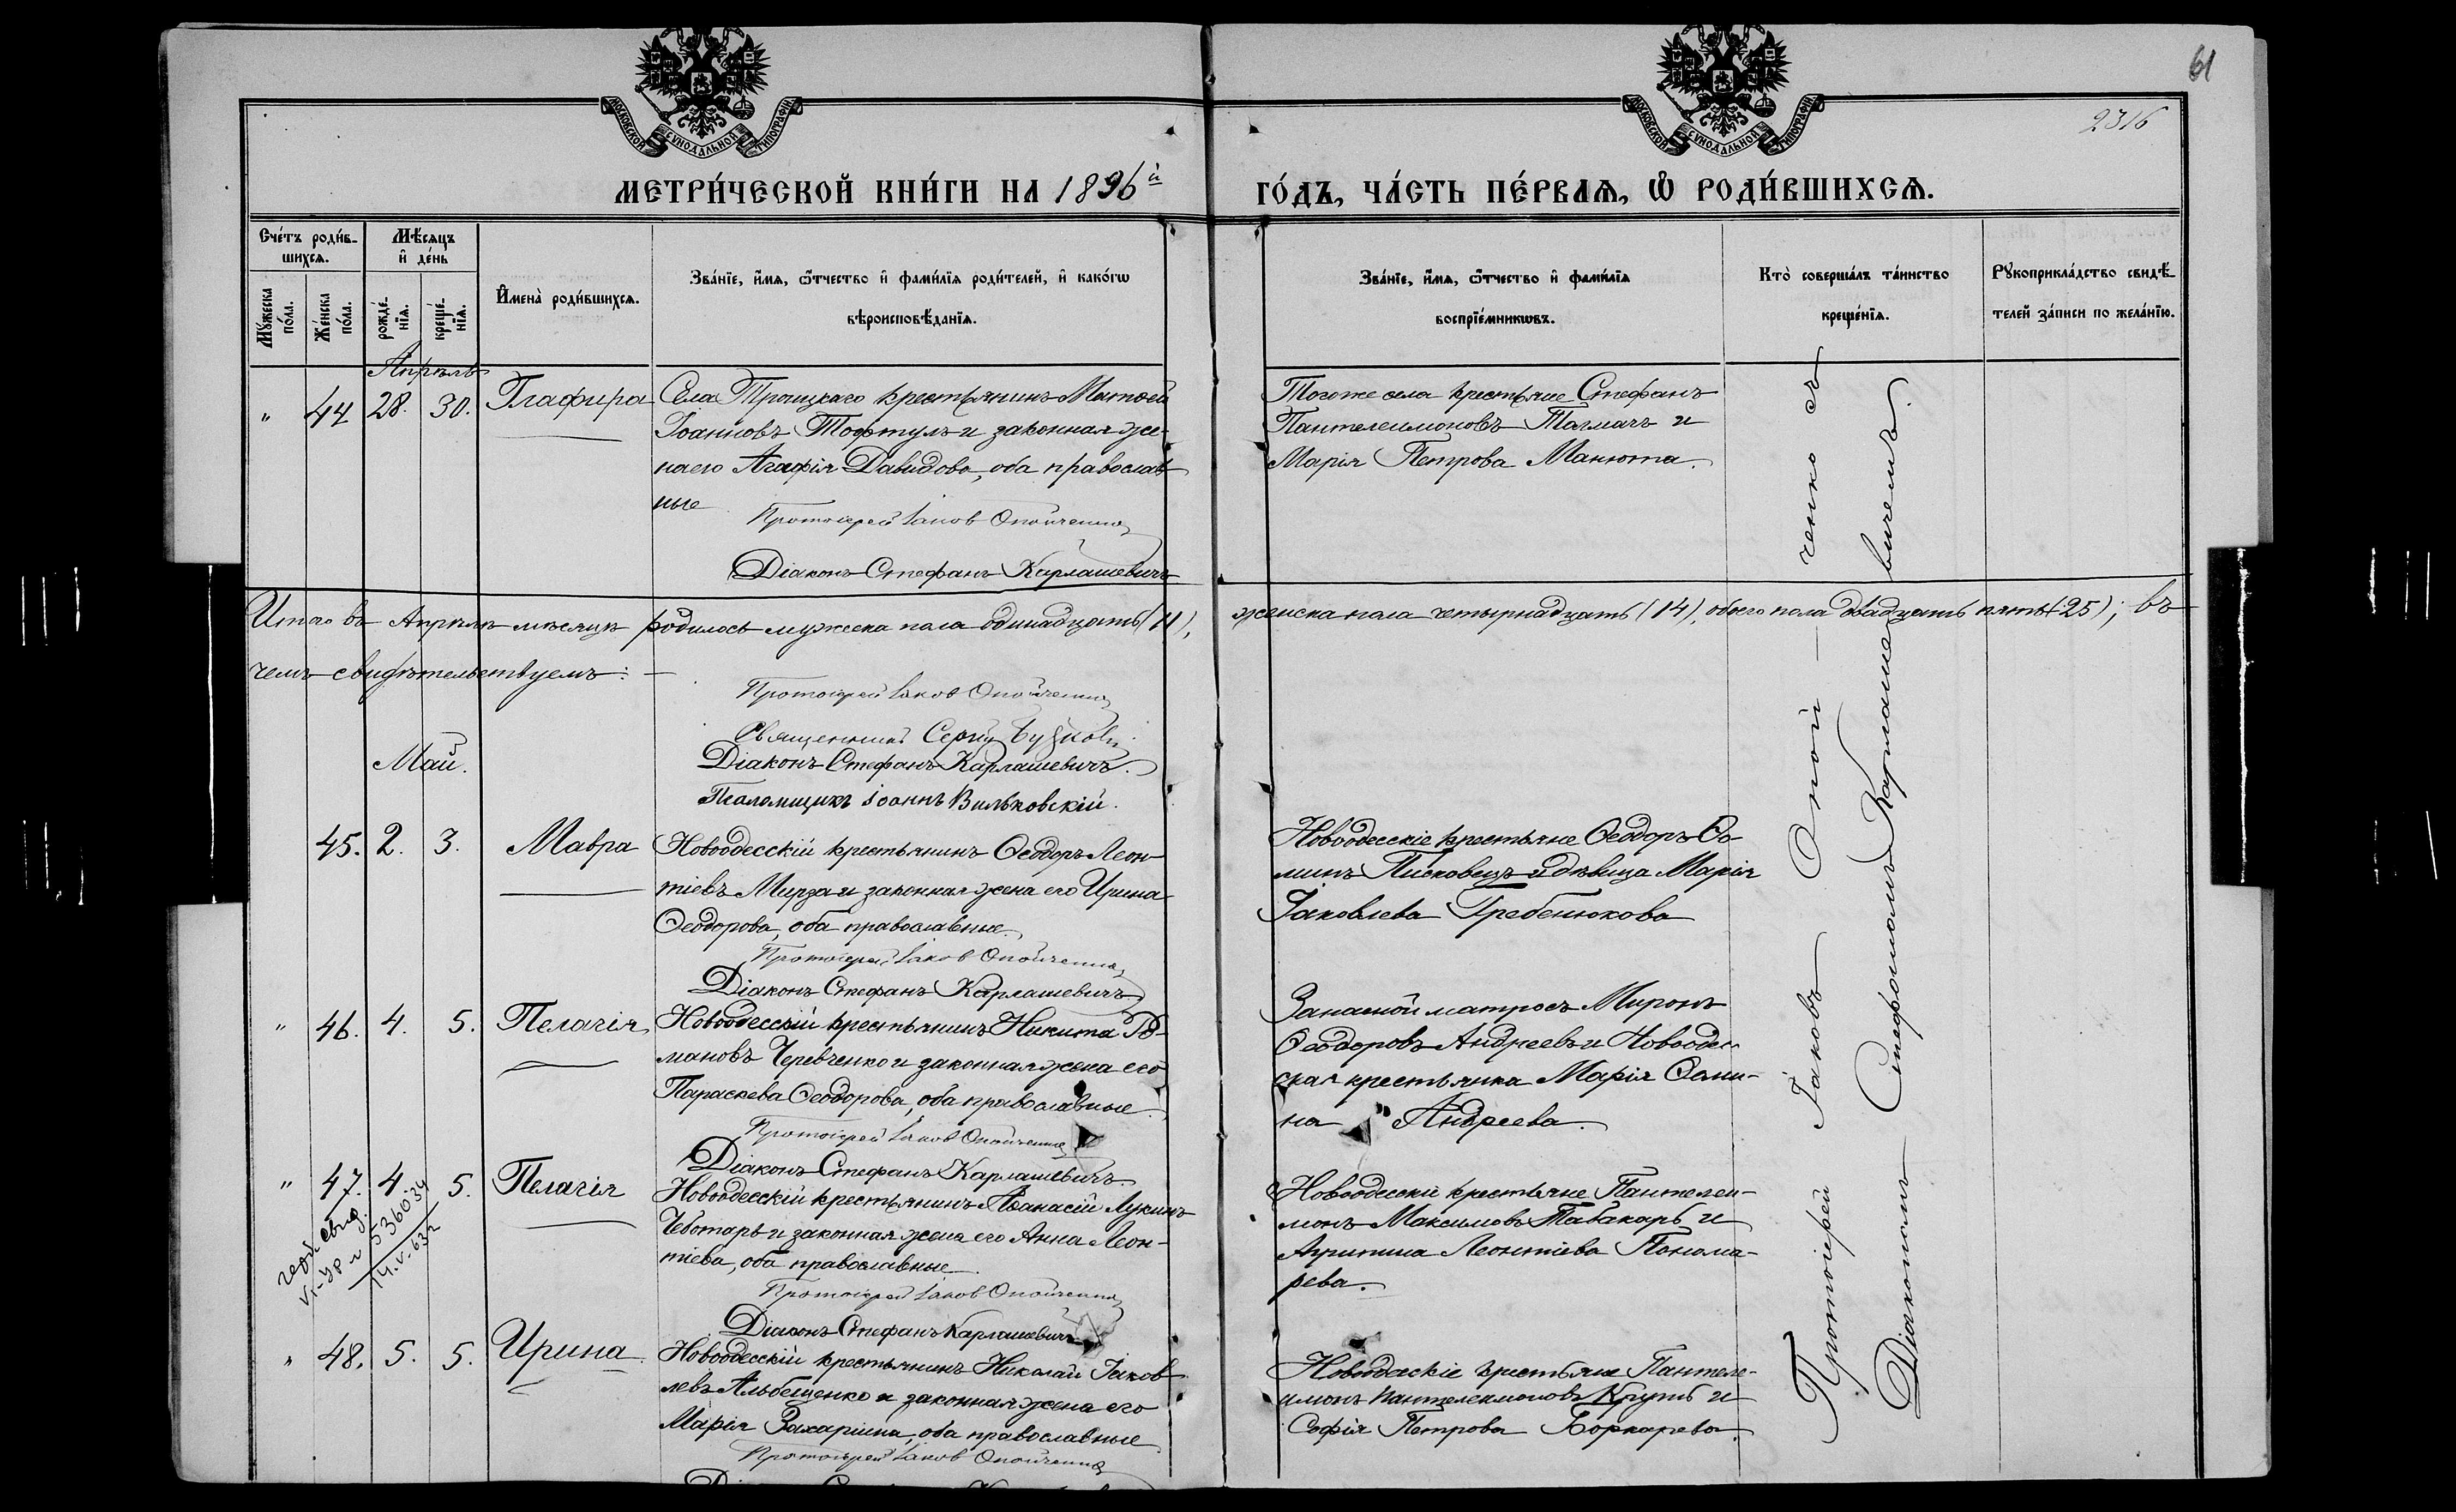 61
2316
МОСКОВСКОЙ СѴНОДАЛЬНОЙ ТИПОГРАФІИ
МОСКОВСКОЙ СѴНОДАЛЬНОЙ ТИПОГРАФІИ
МЕТРИ́ЧЕСКОЙ КНИ́ГИ НА 1896й
ГО́ДЪ, ЧА́СТЬ ПЕ́РВАѦ, Ѿ РОДИ́ВШИХСѦ.
Сче́тъ роди́в-
шихсѧ.
Мѣ́сѧцъ
и҆ де́нь
Мꙋ́жеска
по́ла.
Же́нска
по́ла.
рожде́-
нїѧ.
креще́-
нїѧ.
И҆мена̀ роди́вшихсѧ.
Зва́нїе, и҆́мѧ, ѻ҆́тчество и҆ фами́лїѧ роди́телей, и҆ како́гѡ
вѣроисповѣ́данїѧ.
Зва́нїе, и҆́мѧ, ѻ҆́тчество и҆ фами́лїѧ
воспрїе́мникѡвъ.
Кто̀ соверша́лъ та́инство
креще́нїѧ.
Рꙋкоприкла́дство свидѣ́-
телей за́писи по жела́нїю.
Апрѣль
" 44 28. 30. Глафира
Села Троицкаго крестьянинъ Матѳей
Іоанновъ Тофтулъ и законная же-
на его Агафія Давидова, оба православ
ные
Протоіерей Іаков Опойченко
Діаконъ Стефанъ Карлашевичъ
Тогоже села крестьяне Стефанъ
Пантелеимоновъ Талмачъ и
Марія Петрова Манюта.
Итого въ Апрѣлѣ мѣсяцѣ родилось мужеска пола одинадцать (11), женска пола четырнадцать (14), обоего пола двадцать пять (25); въ
чемъ свидѣтельствуемъ: —
Протоіерей Іаков Опойченко
Священникъ Сергій
Діаконъ Стефанъ Карлашевичъ.
Псаломщикъ Іоаннъ Вильковскій.
Май.
45. 2. 3. Мавра
Новоодесскій крестьянинъ Ѳеодоръ Леон-
тіевъ Мирза и законная жена его Ирина
Ѳеодорова, оба православные.
Протоіерей Іаков Опойченко
Діаконъ Стефанъ Карлашевичъ
Новоодесскіе крестьяне Ѳеодоръ Ѳо-
минъ Писковецъ и дѣвица Марія
Іаковлева Гребенюкова
" 46. 4. 5. Пелагія
Новоодесскій крестьянинъ Никита Ро-
мановъ Черевченко и законная жена его
Параскева Ѳеодорова, оба православные.
Протоіерей Іаков Опойченко
Діаконъ Стефанъ Карлашевичъ
Запасной матросъ Миронъ
Ѳеодоровъ Андреевъ и Новоодес-
ская крестьянка Марія Ѳоми-
на Андреева.
" 47. 4. 5. Пелагія
536034
14.V.63г
Новоодесскій крестьянинъ Аѳанасій Лукинъ
Чеботарь и законная жена его Анна Леон-
тіева, оба православные
Протоіерей Іаков Опойченко
Діаконъ Стефанъ Карлашевичъ
Новоодесскіе крестьяне Пантелеи-
монъ Максимовъ Табакарь и
Агрипина Леонтіева Понома-
рева.
" 48. 5. 5. Ирина
Новоодесскій крестьянинъ Николай Іаков
левъ Альбещенко и законная жена его
Марія Захаріина, оба православные
Протоіерей Іаков Опойченко
Новоодесскіе крестьяне Пантеле-
имонъ Пантелеимоновъ Крупъ и
Софія Петрова Боркарева.
Протоіерей Іаковъ Опой — ченко съ
Діакономъ Стефаномъ Карлашевичемъ.